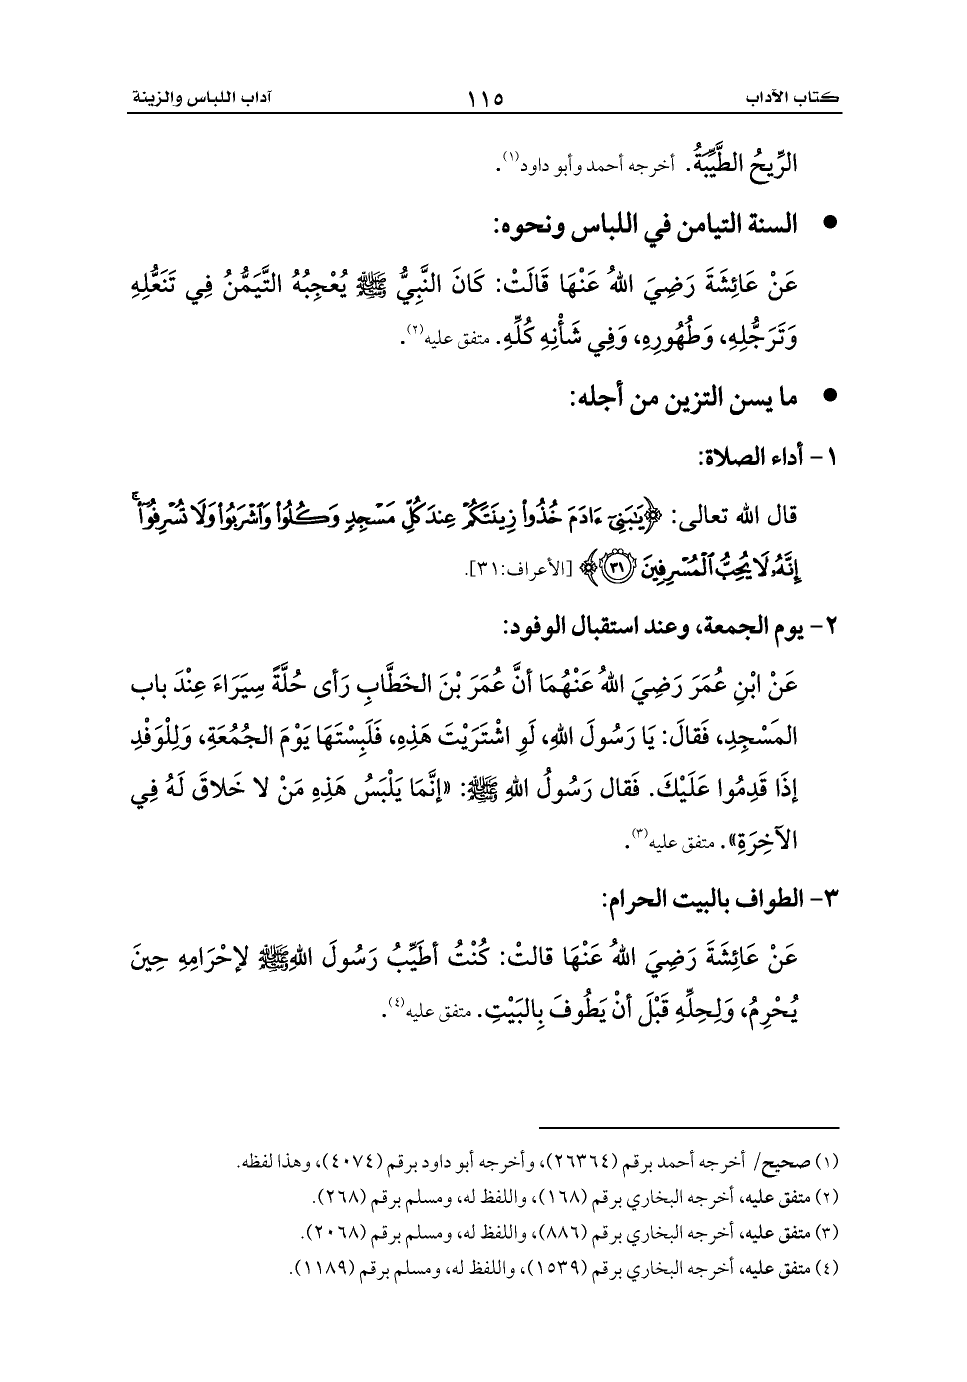 كتاب الآداب ١١٥ آداب اللباس والزينة
الرِّيحُ الطَّيِّبَةُ. أخرجه أحمد وأبو داود(١).
● السنة التيامن في اللباس ونحوه:
عَنْ عَائِشَةَ رَضِيَ اللهُ عَنْهَا قَالَتْ: كَانَ النَّبِيُّ ﷺ يُعْجِبُهُ التَّيَمُّنُ فِي تَنَعُّلِهِ
وَتَرَجُّلِهِ، وَطُهُورِهِ، وَفِي شَأْنِهِ كُلِّهِ. متفق عليه(٢).
● ما يسن التزين من أجله:
١- أداء الصلاة:
قال الله تعالى: ﴿يَٰبَنِيٓ ءَادَمَ خُذُواْ زِينَتَكُمۡ عِندَ كُلِّ مَسۡجِدٖ وَكُلُواْ وَٱشۡرَبُواْ وَلَا تُسۡرِفُوٓاْۚ
إِنَّهُۥ لَا يُحِبُّ ٱلۡمُسۡرِفِينَ ٣١﴾ [الأعراف:٣١].
٢- يوم الجمعة، وعند استقبال الوفود:
عَنْ ابْنِ عُمَرَ رَضِيَ اللهُ عَنْهُمَا أنَّ عُمَرَ بْنَ الخَطَّابِ رَأى حُلَّةً سِيَرَاءَ عِنْدَ باب
المَسْجِدِ، فَقالَ: يَا رَسُولَ اللهِ، لَوِ اشْتَرَيْتَ هَذِهِ، فَلَبِسْتَهَا يَوْمَ الجُمُعَةِ، وَلِلْوَفْدِ
إذَا قَدِمُوا عَلَيْكَ. فَقال رَسُولُ اللهِ ﷺ: «إنَّمَا يَلْبَسُ هَذِهِ مَنْ لا خَلاقَ لَهُ فِي
الآخِرَةِ». متفق عليه(٣).
٣- الطواف بالبيت الحرام:
عَنْ عَائِشَةَ رَضِيَ اللهُ عَنْهَا قالتْ: كُنْتُ أطَيِّبُ رَسُولَ اللهِ ﷺ لإحْرَامِهِ حِينَ
يُحْرِمُ، وَلِحِلِّهِ قَبْلَ أنْ يَطُوفَ بِالبَيْتِ. متفق عليه(٤).
(١) صحيح/ أخرجه أحمد برقم (٢٦٣٦٤)، وأخرجه أبو داود برقم (٤٠٧٤)، وهذا لفظه.
(٢) متفق عليه، أخرجه البخاري برقم (١٦٨)، واللفظ له، ومسلم برقم (٢٦٨).
(٣) متفق عليه، أخرجه البخاري برقم (٨٨٦)، واللفظ له، ومسلم برقم (٢٠٦٨).
(٤) متفق عليه، أخرجه البخاري برقم (١٥٣٩)، واللفظ له، ومسلم برقم (١١٨٩).